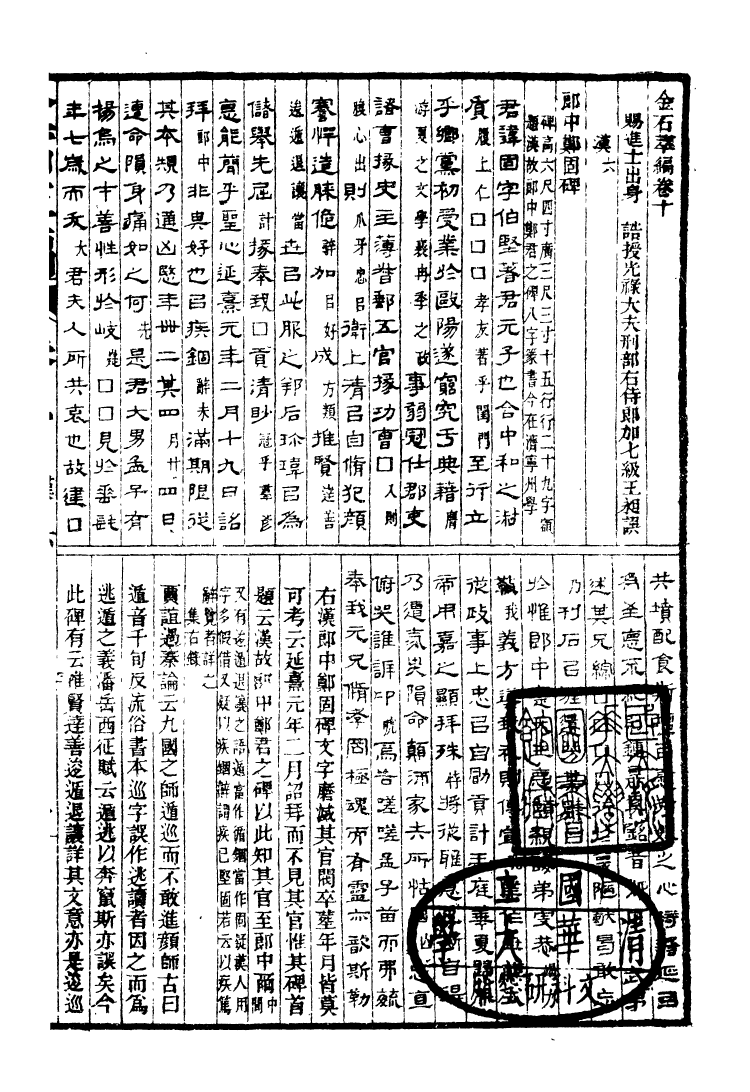 金石萃編卷十
賜進士出身 誥授光祿大夫刑部右侍郎加七級王昶譔
漢六
郎中鄭固碑
碑高六尺四寸廣二尺三寸十五行行二十九字額
題漢故郎中鄭君之碑八字篆書今在濟寧州學
君諱固字伯堅著君元子也含中和之淑
質履上仁口口口孝友著乎閨門至行立
乎鄉黨初受業於歐陽遂窮究于典籍膺
游夏之文學襄冉季之政事弱冠仕郡吏
諸曹掾史主簿督郵五官掾功曹口入則
腹心出則爪牙忠㠯衛上清㠯自脩犯顏
謇愕造膝佹辭加㠯好成方類推賢達善
逡遁退讓當世㠯此服之邦后珍瑋㠯爲
儲舉先屈計掾奉我口貢清眇冠乎羣彥
悳能簡乎聖心延熹元年二月十九日詔
拜郎中非其好也㠯疾錮辭未滿期限從
其本規乃遘凶愍年卌二其四月廿四日
遭命隕身痛如之何先是君大男孟子有
楊烏之才善性形於岐嶷口口見於垂髦
年七歲而夭大君夫人所共哀也故建口
共墳配食斯壇㠯慰考妣之心
乃刊石㠯
於惟郎中
我義方
從政事上忠㠯自勖貢計王庭華夏歸服
帝用嘉之顯拜殊特將從雅意
乃遭氛災隕命顛沛家失所怙
俯哭誰訴卬號焉告嗟嗟孟子苗而弗毓
奉我元兄脩孝罔極魂而有靈亦歆斯勒
右漢郎中鄭固碑文字磨滅其官閥卒葬年月皆莫
可考云延熹元年二月詔拜而不見其官惟其碑首
題云漢故郎中鄭君之碑以此知其官至郎中爾中閒
又有逡遁退讓之語遁當作循錮當作固疑漢人用
字多假借又疑以疾錮辭謂疾已堅固若云以疾篤
辭覽者詳之
集古錄
賈誼過秦論云九國之師遁巡而不敢進顏師古曰
遁音千旬反流俗書本巡字誤作逃讀者因之而爲
逃遁之義潘岳西征賦云遁逃以奔竄斯亦誤矣今
此碑有云推賢達善逡遁退讓詳其文意亦是逡巡